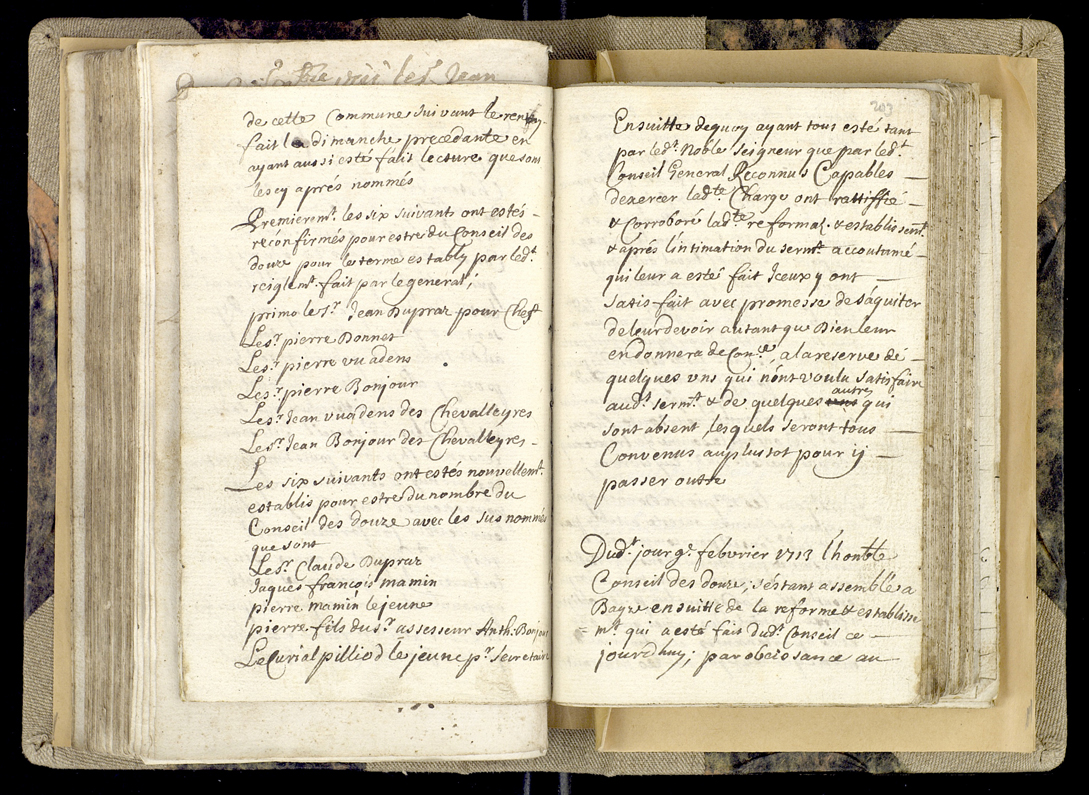 les.r Jean
de cette Commune suivant le
fait le dimanche precedante en
ayant aussi esté fait lecture que sont
les cy aprés nommés
Premierem.t les six suivants ont estés -
reconfirmés pour estre du Conseil des
douze pour le terme estably par led.t
reiglem.t fait par le general;
primo le s.r Jean Dupraz pour Chef
Le s.r pierre Bonnet
Le s.r pierre vuadens
Le s.r pierre Bonjour
Le s.r Jean vuadens des Chevalleyres
Le s.r Jean Bonjour des Chevalleyres -
Les six suivants ont estés nouvellem.t
establis pour estre du nombre du
Conseil des douze avec les sus nommés
que sont
Le s.r Claude Dupraz
Jaques françois mamin
pierre mamin le jeune
pierre fils du s.r assesseur Anth: Bonjour
Le Curial pilliod le jeune p.r secretaire
203
Ensuitte dequoy ayant tous esté tant
par led.t Noble seigneur que par led.t
Conseil General Reconnus Capables —
dexercer lad.te Charge ont rattiffié —
& Corroboré lad.te reforma.n & establissem.t
& aprés l'intimation du serm.t accoutumé —
qui leur a esté fait Iceux y ont —
satisfait avec promesse de s'aquiter
de leur devoir autant que Dieu leur
en donnera de Con.ce, a la reserve de —
quelques uns qui n'ont voulu satisfaire
aud.t serm.t & de quelques autres qui
sont absent, lesquels seront tous —
Convenus au plus tot pour ij —
passer outre
Dud.t jour 9.e febvrier 1713 l'honble
Conseil des douze, s'estant assemblés a
Baye ensuitte de la reforme & establiss
= m.t qui a esté fait dud.t Conseil ce —
jourdhuy; par obeissance au